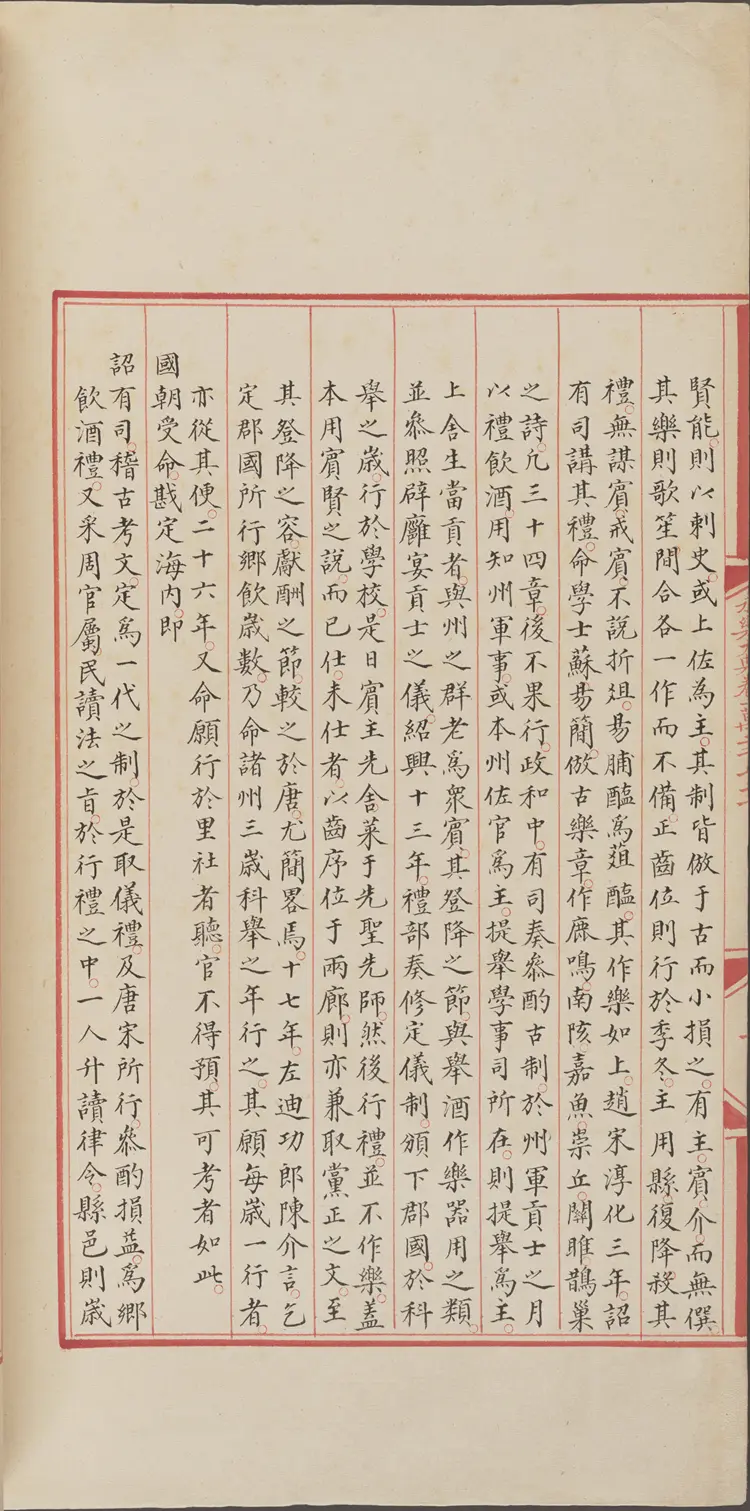 賢能則以刺史或上佐為主其制皆倣于古而小損之有主賓介而無僎
其樂則歌笙間合各一作而不備正齒位則行於季冬主用縣復降殺其
禮無謀賓戒賓不說折俎昜脯醢為葅醢其作樂如上趙宋淳化三年詔
有司講其禮命學士蘇昜簡倣古樂章作鹿鳴南陔嘉魚崇丘關雎鵲巢
之詩凢三十四章後不果行政和中有司奏叅酌古制於州軍貢士之月
以禮飲酒用知州軍事或本州佐官為主提舉學事司所在則提舉為主
上舍生當貢者與州之群老為衆賓其登降之節與舉酒作樂器用之類
並叅照辟廱宴貢士之儀紹興十三年禮部奏修定儀制頒下郡國於科
舉之歲行於學校是日賓主先舍菜于先聖先師然後行禮並不作樂蓋
本用賓賢之說而已仕未仕者以齒序位于兩廊則亦兼取黨正之文至
其登降之容獻酬之節較之於唐尤簡畧焉十七年左迪功郎陳介言乞
定郡國所行鄉飲歲數乃命諸州三歲科舉之年行之其願每歲一行者
亦從其便二十六年又命願行於里社者聽官不得預其可考者如此
國朝受命戡定海內即
詔有司稽古考文定為一代之制於是取儀禮及唐宋所行叅酌損益為鄉
飲酒禮又采周官屬民讀法之旨於行禮之中一人升讀律令縣邑則歲